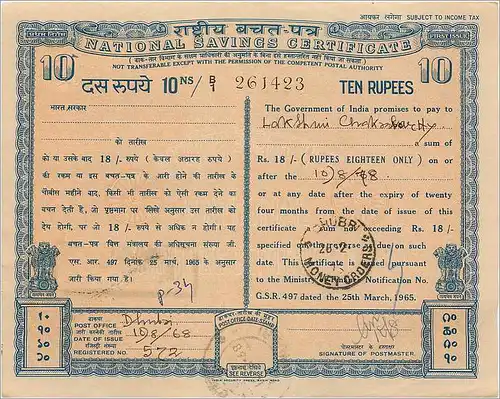 आयकर लगेगा SUBJECT TO INCOME TAX
राष्ट्रीय बचत-पत्र
NATIONAL SAVINGS CERTIFICATE
FIRST ISSUE
NOT TRANSFERABLE EXCEPT WITH THE PERMISSION OF THE COMPETENT POSTAL AUTHORITY
10
10
दस रूपये 10 NS/ B/1 261423 TEN RUPEES
भारत सरकार
को तारीख
को या उसके बाद 18 /- रुपये ( केवल अठारह रुपये )
की रकम या इस बचत-पत्र के जारी होने की तारीख के
चौबीस महीने बाद, किसी भी तारीख को ऐसी रकम देने का
वचन देती है, जो पृष्ठभाग पर लिखे अनुसार उस तारीख को
देय होगी, पर जो 18 /- रुपये से अधिक न होगी । यह
बचत-पत्र वित्त मंत्रालय की अधिसूचना संख्या जी.
एस. आर. 497 दिनांक 25 मार्च, 1965 के अनुसार
जारी किया गया है।
p-34
The Government of India promises to pay to
Lakshmi
a sum of
Rs. 18 /- (RUPEES EIGHTEEN ONLY) on or
after the 10/8/68
or at any date after the expiry of twenty
four months from the date of issue of this
certificate a sum not exceeding Rs. 18 /-
as prescribed on the reverse as due on such
date. This certificate is issued pursuant
to the Ministry of Finance Notification No.
G.S.R. 497 dated the 25th March, 1965.
DHUBRI
MONEY ORDERS
डाकघर
POST OFFICE Dhubri
जारी करनेकी तारीख
DATE OF ISSUE 10/8/68
रजिस्ट्री संख्या
REGISTERED NO. 572
POST OFFICE DATE-STAMP
पृष्ठभाग देखिये
SEE REVERSE
पोस्टमास्टर के हस्ताक्षर
SIGNATURE OF POSTMASTER
INDIA SECURITY PRESS, NASIK ROAD